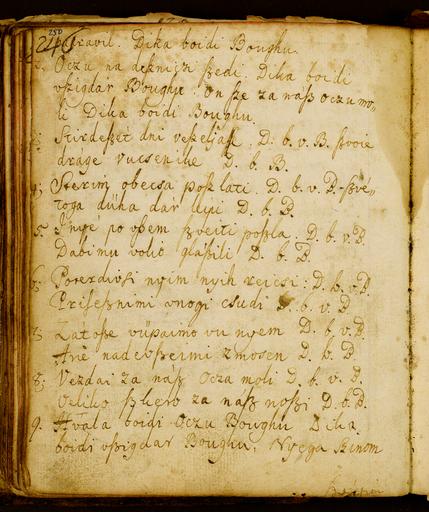 250
246
pravil. Dika boidi Boughu.
2. Oczu na deszniczi szedi. Dika boidi
vszigdar Boughu. On sze za nász Oczu mo=
li Dika boidi Boughu.
3. Stirdeszét dni veszeljasse. D: b. v. B. szvoie
drage vucsenike D. b. B.
4. Sterim obecsa poszlati. D. b. v. B. szvé=
toga düha dar lipi D. b. B.
5. I nyé po vszem szveiti poszla. D. b. v. B.
Dabi mu volio glaszili D. b. B.
6. Potrdivsi nyim nyih reicsi: D. b. v. B.
mnogi csudi D. b. v. B
7. Zatosze vüpaimo vu nyem D. b. v. B.
Ar je nadevszeimi zmosen D. b. B.
8. Vezdai za nász Ocza moli D. b. v. B.
Veliko szkerb za nasz noszi D. b. B.
9. Hvála boidi Oczu Boughu Dika
boidi vszigdar Boughu, Nyega Szinom